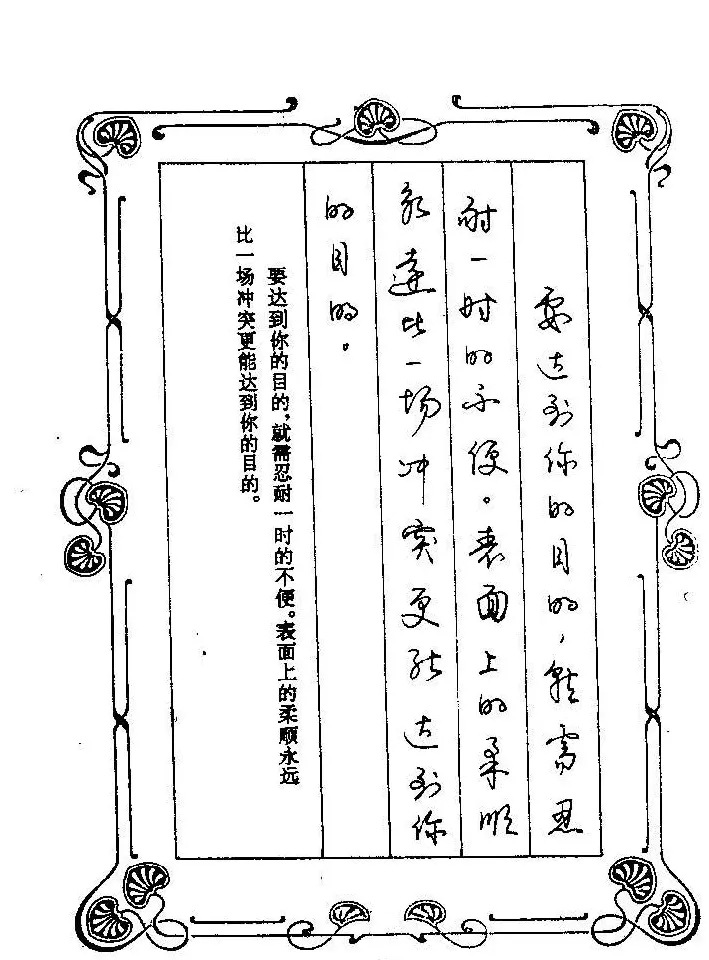 要达到你的目的，就需忍
耐一时的不便。表面上的柔顺
永远比一场冲突更能达到你
的目的。
要达到你的目的，就需忍耐一时的不便。表面上的柔顺永远
比一场冲突更能达到你的目的。